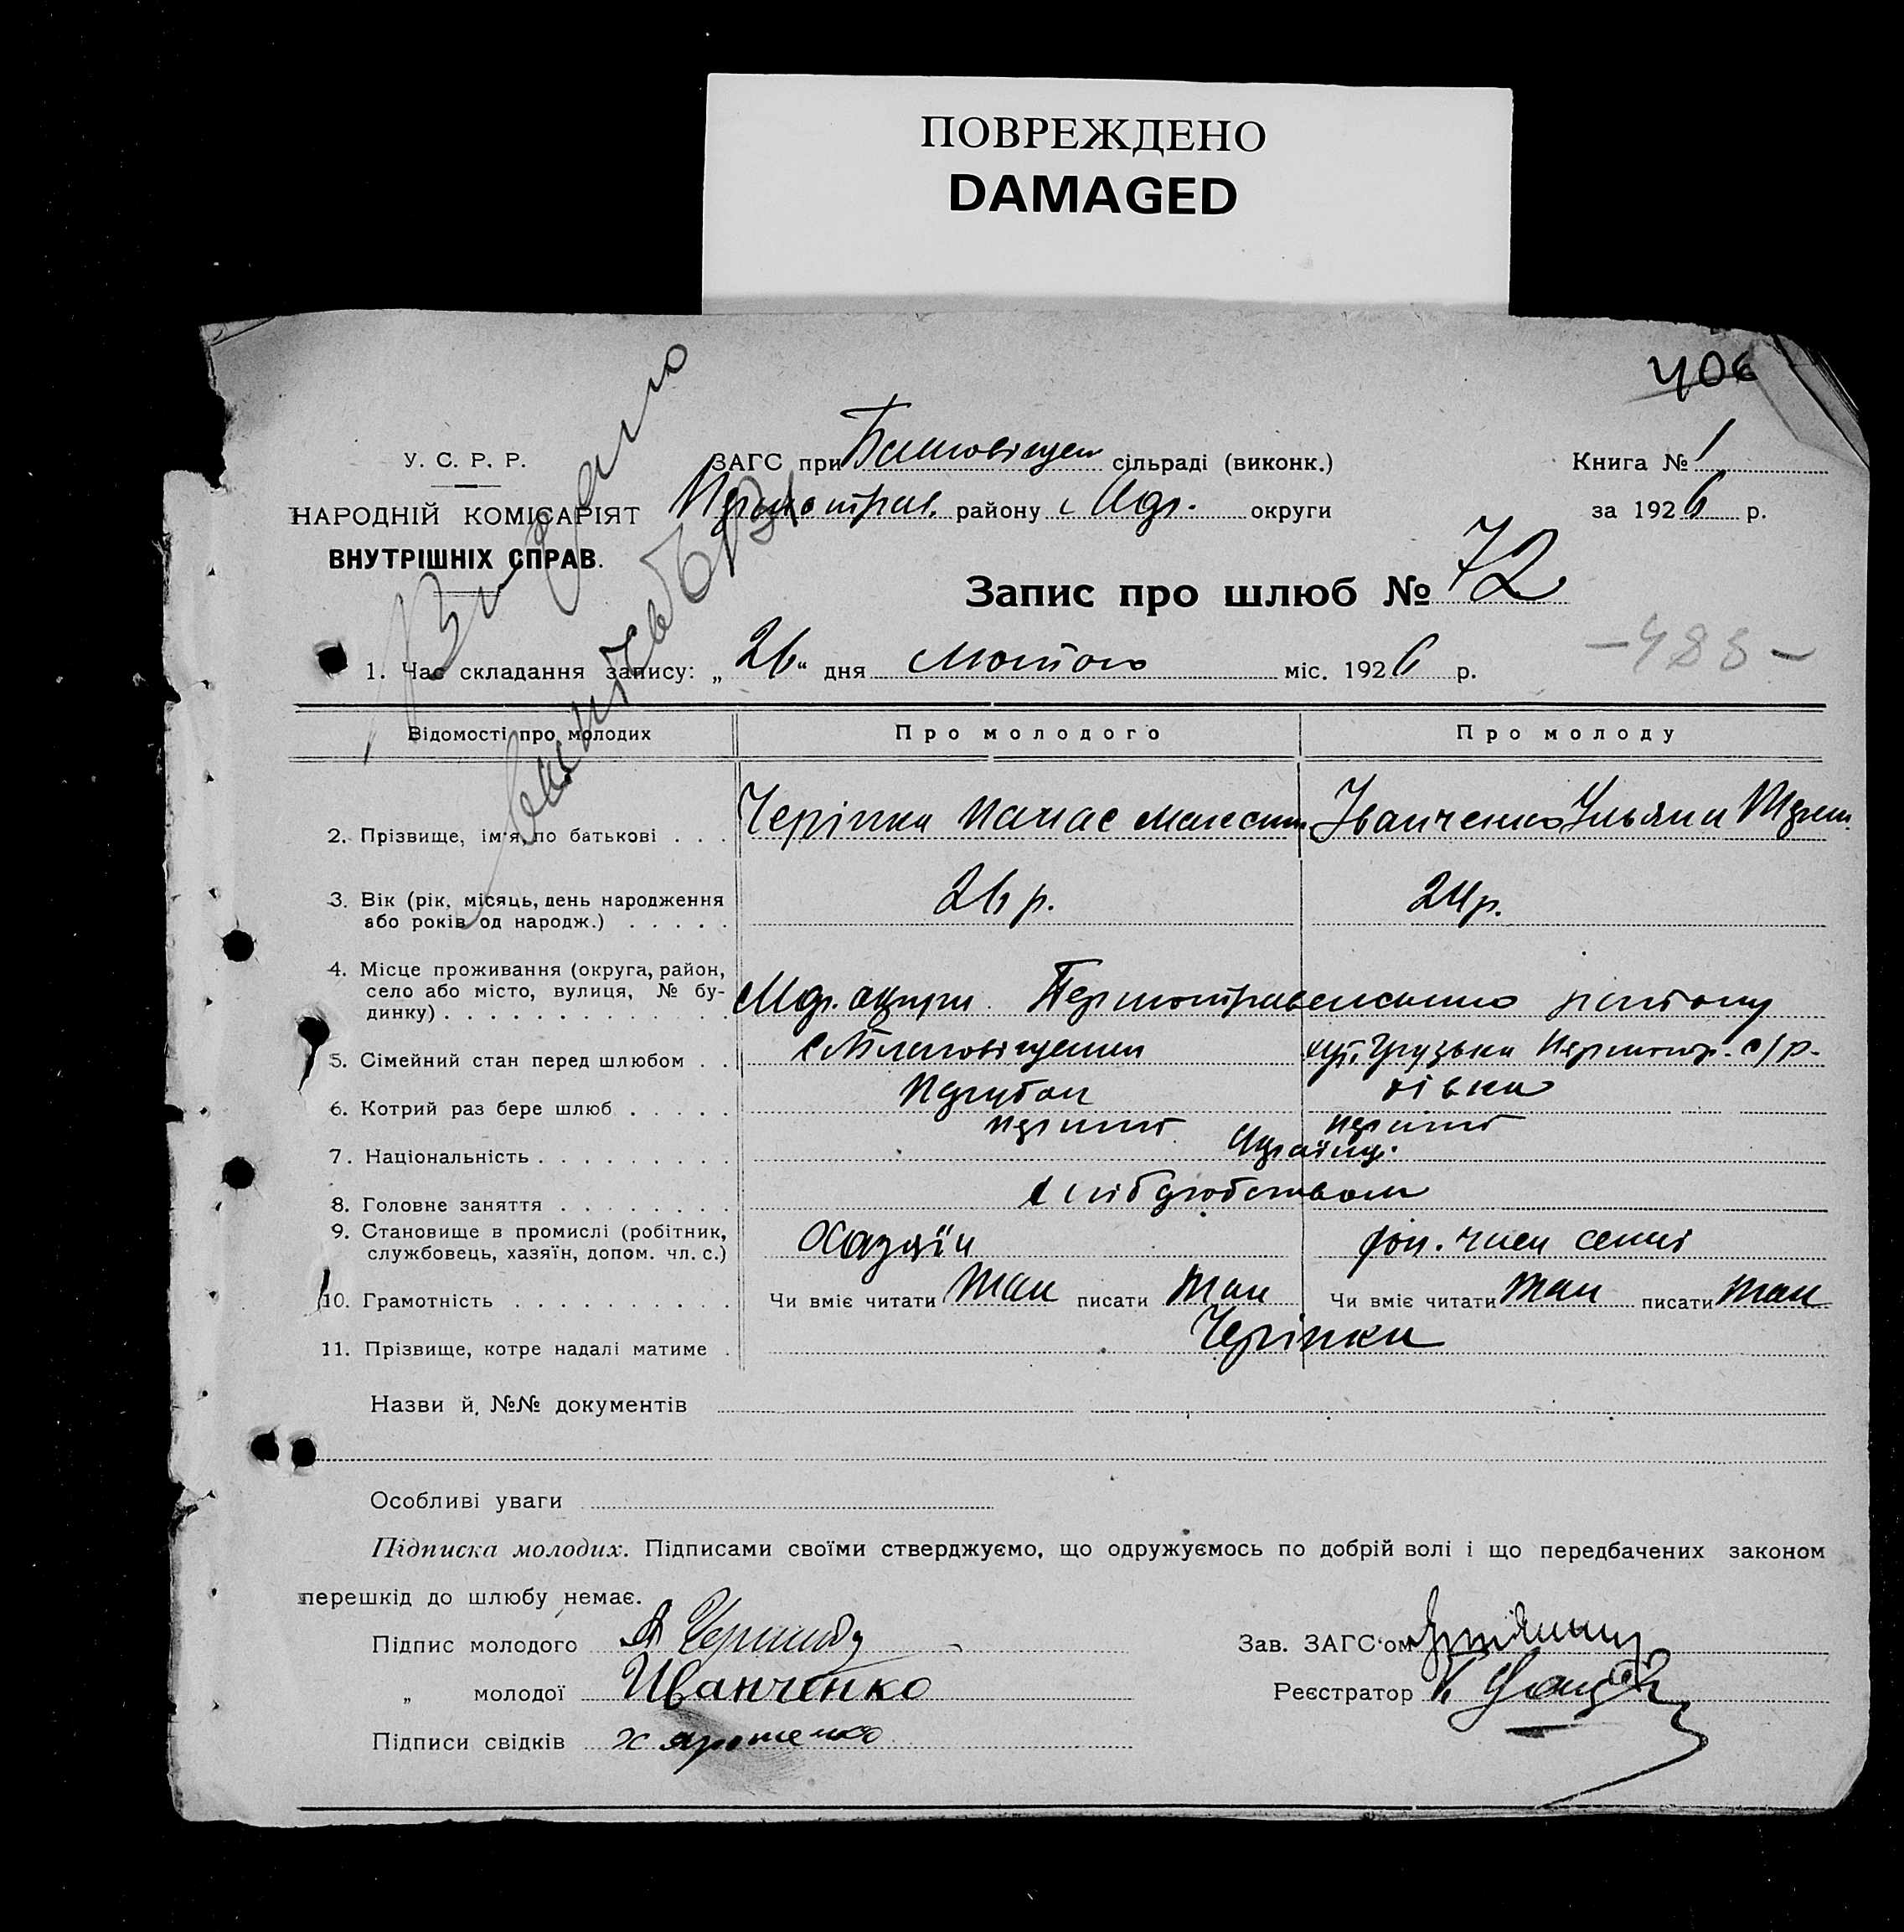 ПОВРЕЖДЕНО
DAMAGED
406
У. С. Р. Р.
НАРОДНІЙ КОМІСАРІЯТ
ВНУТРІШНІХ СПРАВ.
Видано
ЗАГС при сільраді (виконк.)
району округи
Книга № 1
за 1926 р.
Запис про шлюб № 72
1. Час складання запису: „26“ дня Лютого міс. 1926 р.
Відомості про молодих Про молодого Про молоду
2. Прізвище, ім'я, по батькові . . . Черіпка Панас Максим. Іванченко Ульяна
3. Вік (рік, місяць, день народження
або років од народж.) . . . . . 26 р. 24 р.
4. Місце проживання (округа, район,
село або місто, вулиця, № бу-
динку) . . . . . . . . . . . . . . Мар. округи Першотравенського району
5. Сімейний стан перед шлюбом . . с. Благовіщенка хут. Грузька Першотр. с/р.
6. Котрий раз бере шлюб . . . . . Парубок дівка
перший перший
7. Національність . . . . . . . . . Українці
8. Головне заняття . . . . . . . . Хліборобством
9. Становище в промислі (робітник,
службовець, хазяїн, допом. чл. с.) Хазяїн доп. член семї
10. Грамотність . . . . . . . . . . Чи вміє читати Так писати Так Чи вміє читати Так писати Так
11. Прізвище, котре надалі матиме . Черіпки
Назви й, №№ документів
Особливі уваги
Підписка молодих. Підписами своїми стверджуємо, що одружуємось по добрій волі і що передбачених законом
перешкід до шлюбу немає.
Підпис молодого
Зав. ЗАГС'ом
„ молодої Иванченко
Реєстратор
Підписи свідків х ярошенко